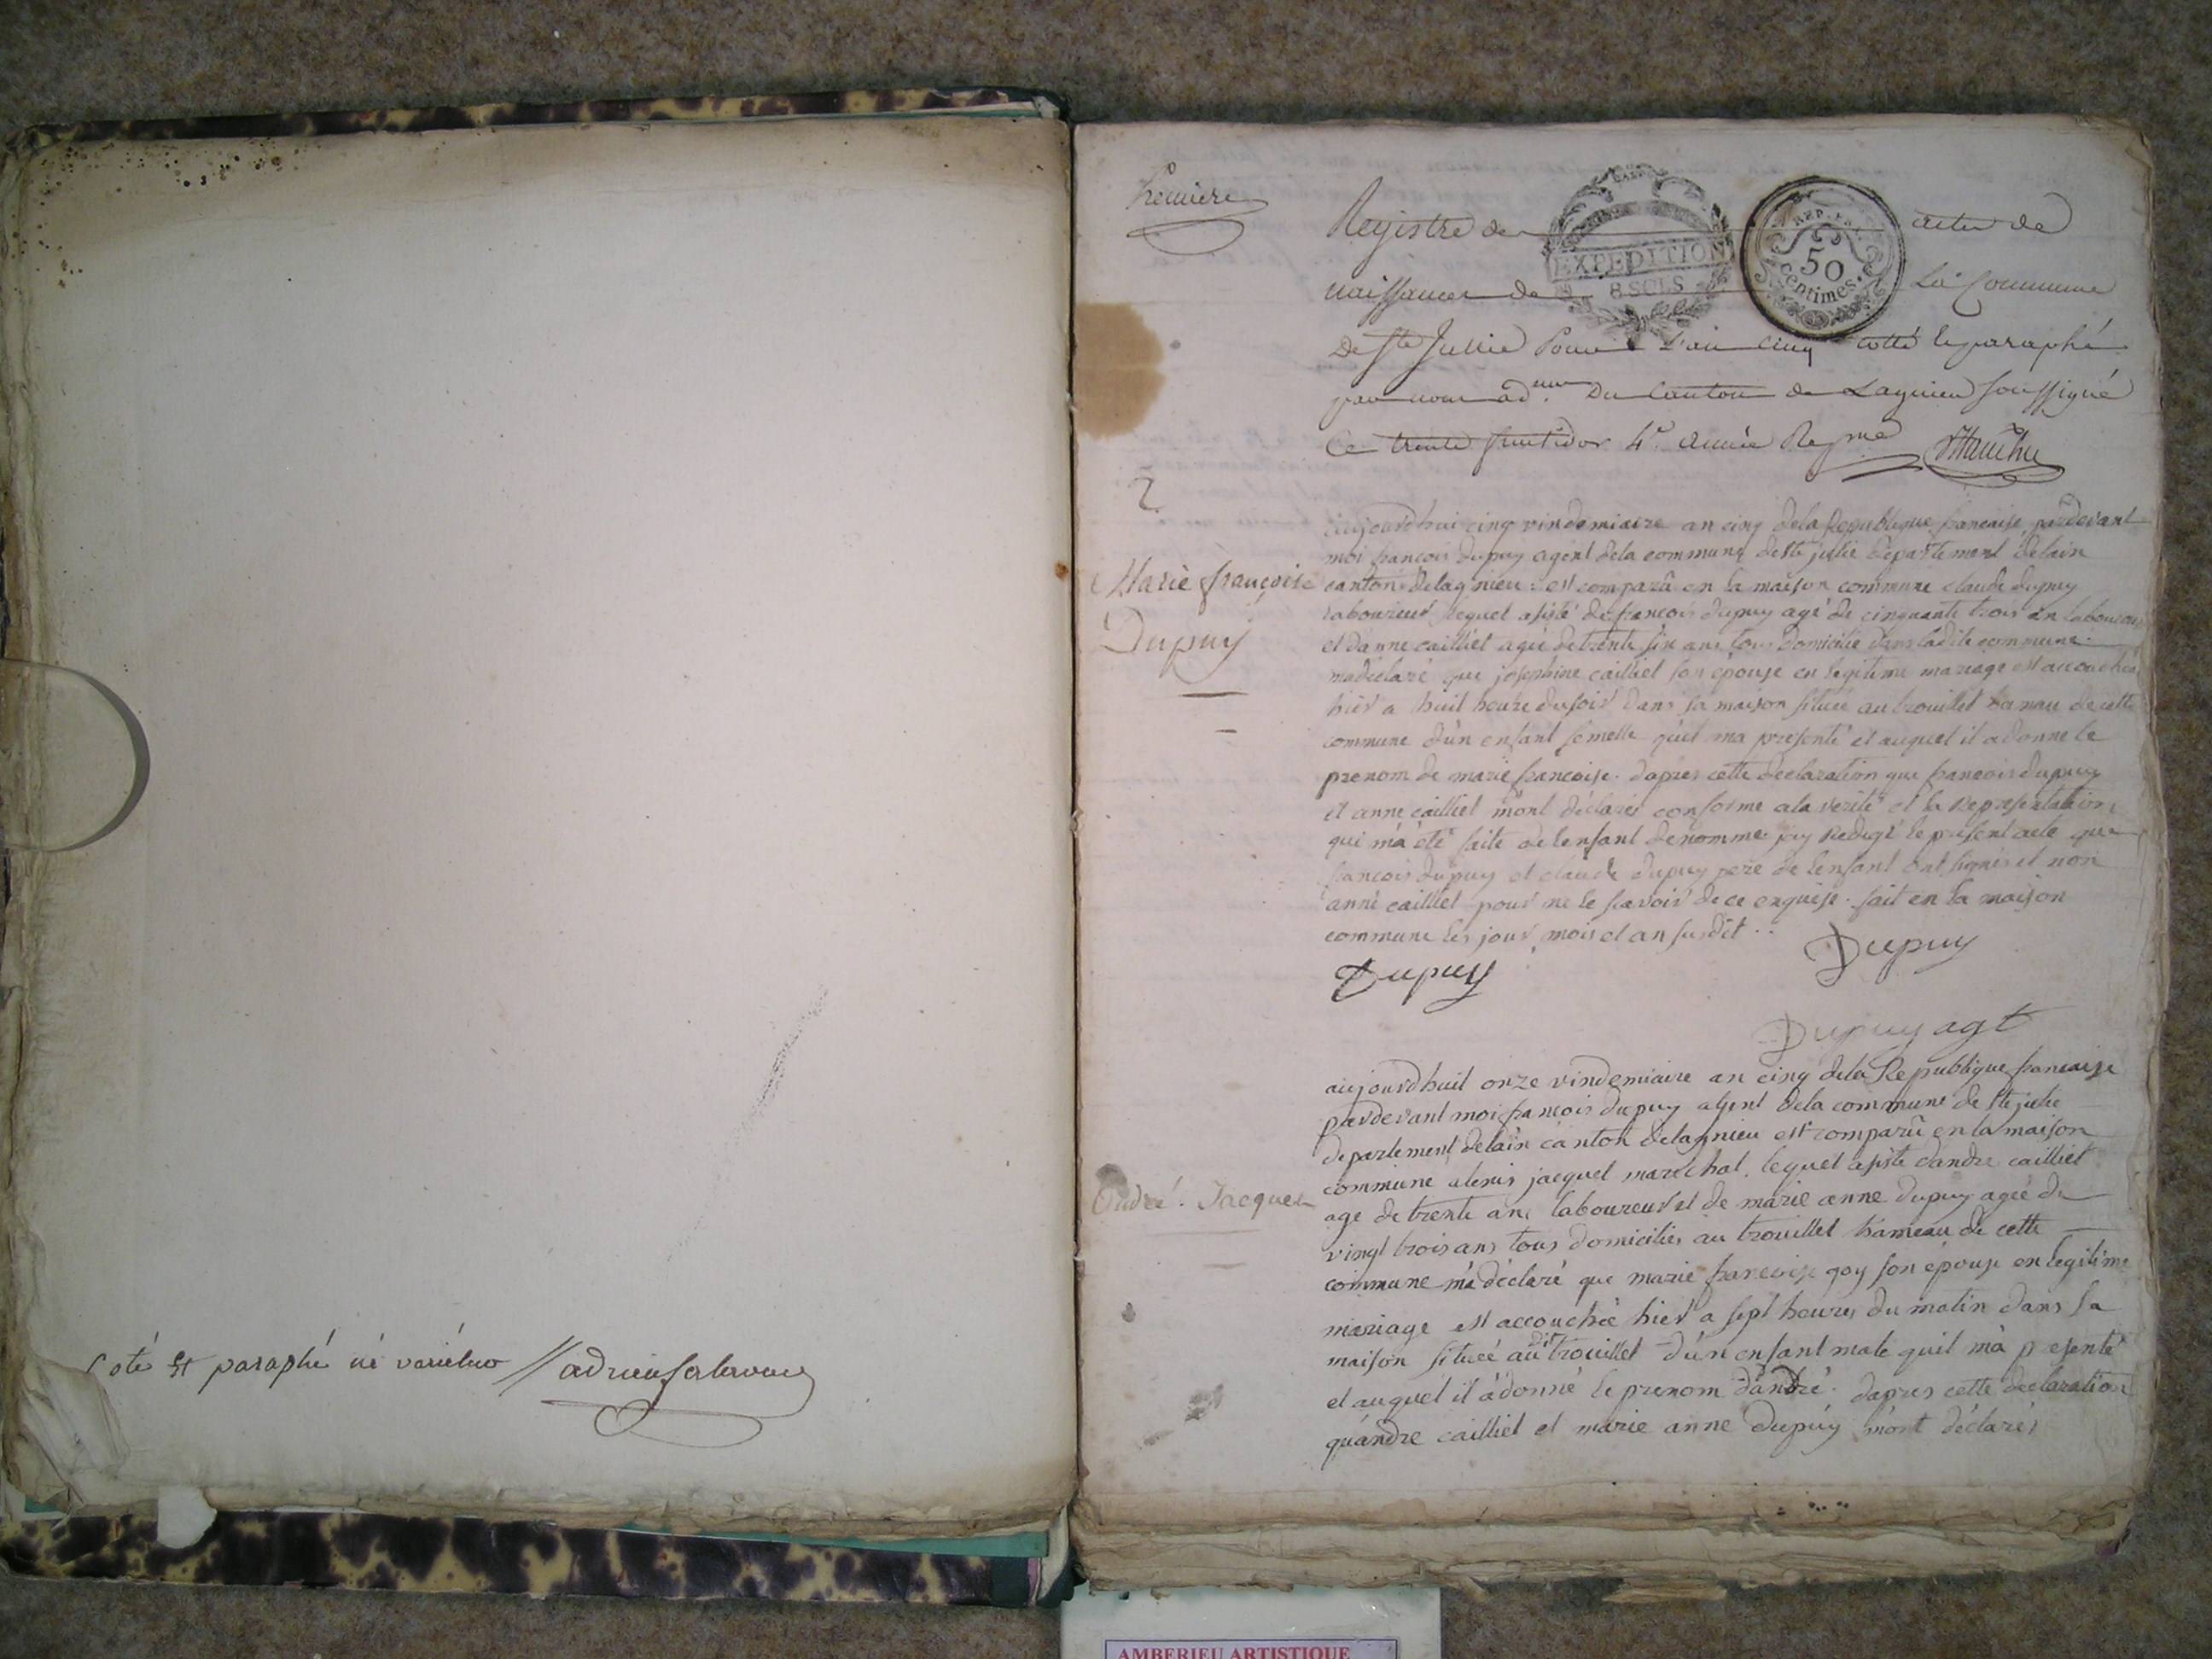 Coté Et paraphé né varietur
Première
Registre des actes de
naissances de La Commune
EXPEDITION
8 SOLS
REP. FRA.
50
centimes.
De Ste Jullie Pour L'an cinq cotté & paraphé
par nous adm. Du Canton de Lagnieu soussigné
Ce trente fructidor 4e. année Rep.ne
2
Marie françoise
Dupuy
aujourdhui cinq vindemiaire an cinq dela Republique francaise pardevant
moi francois dupuy agent dela commune de ste julie departement delain
canton delagnieu est comparû en la maison commune claude dupuy
laboureur lequel asisté de francois dupuy agé de cinquante trois an laboureur
et danne cailliet agée detrente six ans tous domicilié dans ladite commune.
madéclaré que josephine cailliet son épouse en legitime mariage est accouchée
hier a huit heure dusoir dans sa maison située au trouillet hamau de cette
commune d'un enfant femelle quil ma presenté et auquel il adonne le
prenom de marie francoise. daprès cette declaration que francois dupuy
et anne cailliet mont déclarés conforme ala verité et la representation
qui m'a été faite de lenfant denommé jay redigé le present acte que
francois dupuy et claude dupuy pere de lenfant ont signés et non
anne cailliet pour ne le savoir de ce enquise. fait en la maison
commune les jour mois et an susdit..
Dupuy
Dupuy
Dupuy agt
André. Jacquet
aujourdhuit onze vindemiaire an cinq dela Republique francaise
pardevant moi francois dupuy agent dela commune de ste julie
departement delain canton delagnieu est comparû en la maison
commune alexis jacquet marechal. lequel asisté dandré cailliet
age de trente ans laboureur et de marie anne dupuy agée de
vingt trois ans tous domiciliés au trouillet hameau de cette
commune m'a déclaré que marie francoise goy son épouse en legitime
mariage est accouchée hier a sept heures du matin dans sa
maison située au dit trouillet d'un enfant male quil m'a presenté
et auquel il adonné le prenom dandré. dapres cette declaration
quandre cailliet et marie anne dupuy mont déclarés
AMBERIEU ARTISTIQUE